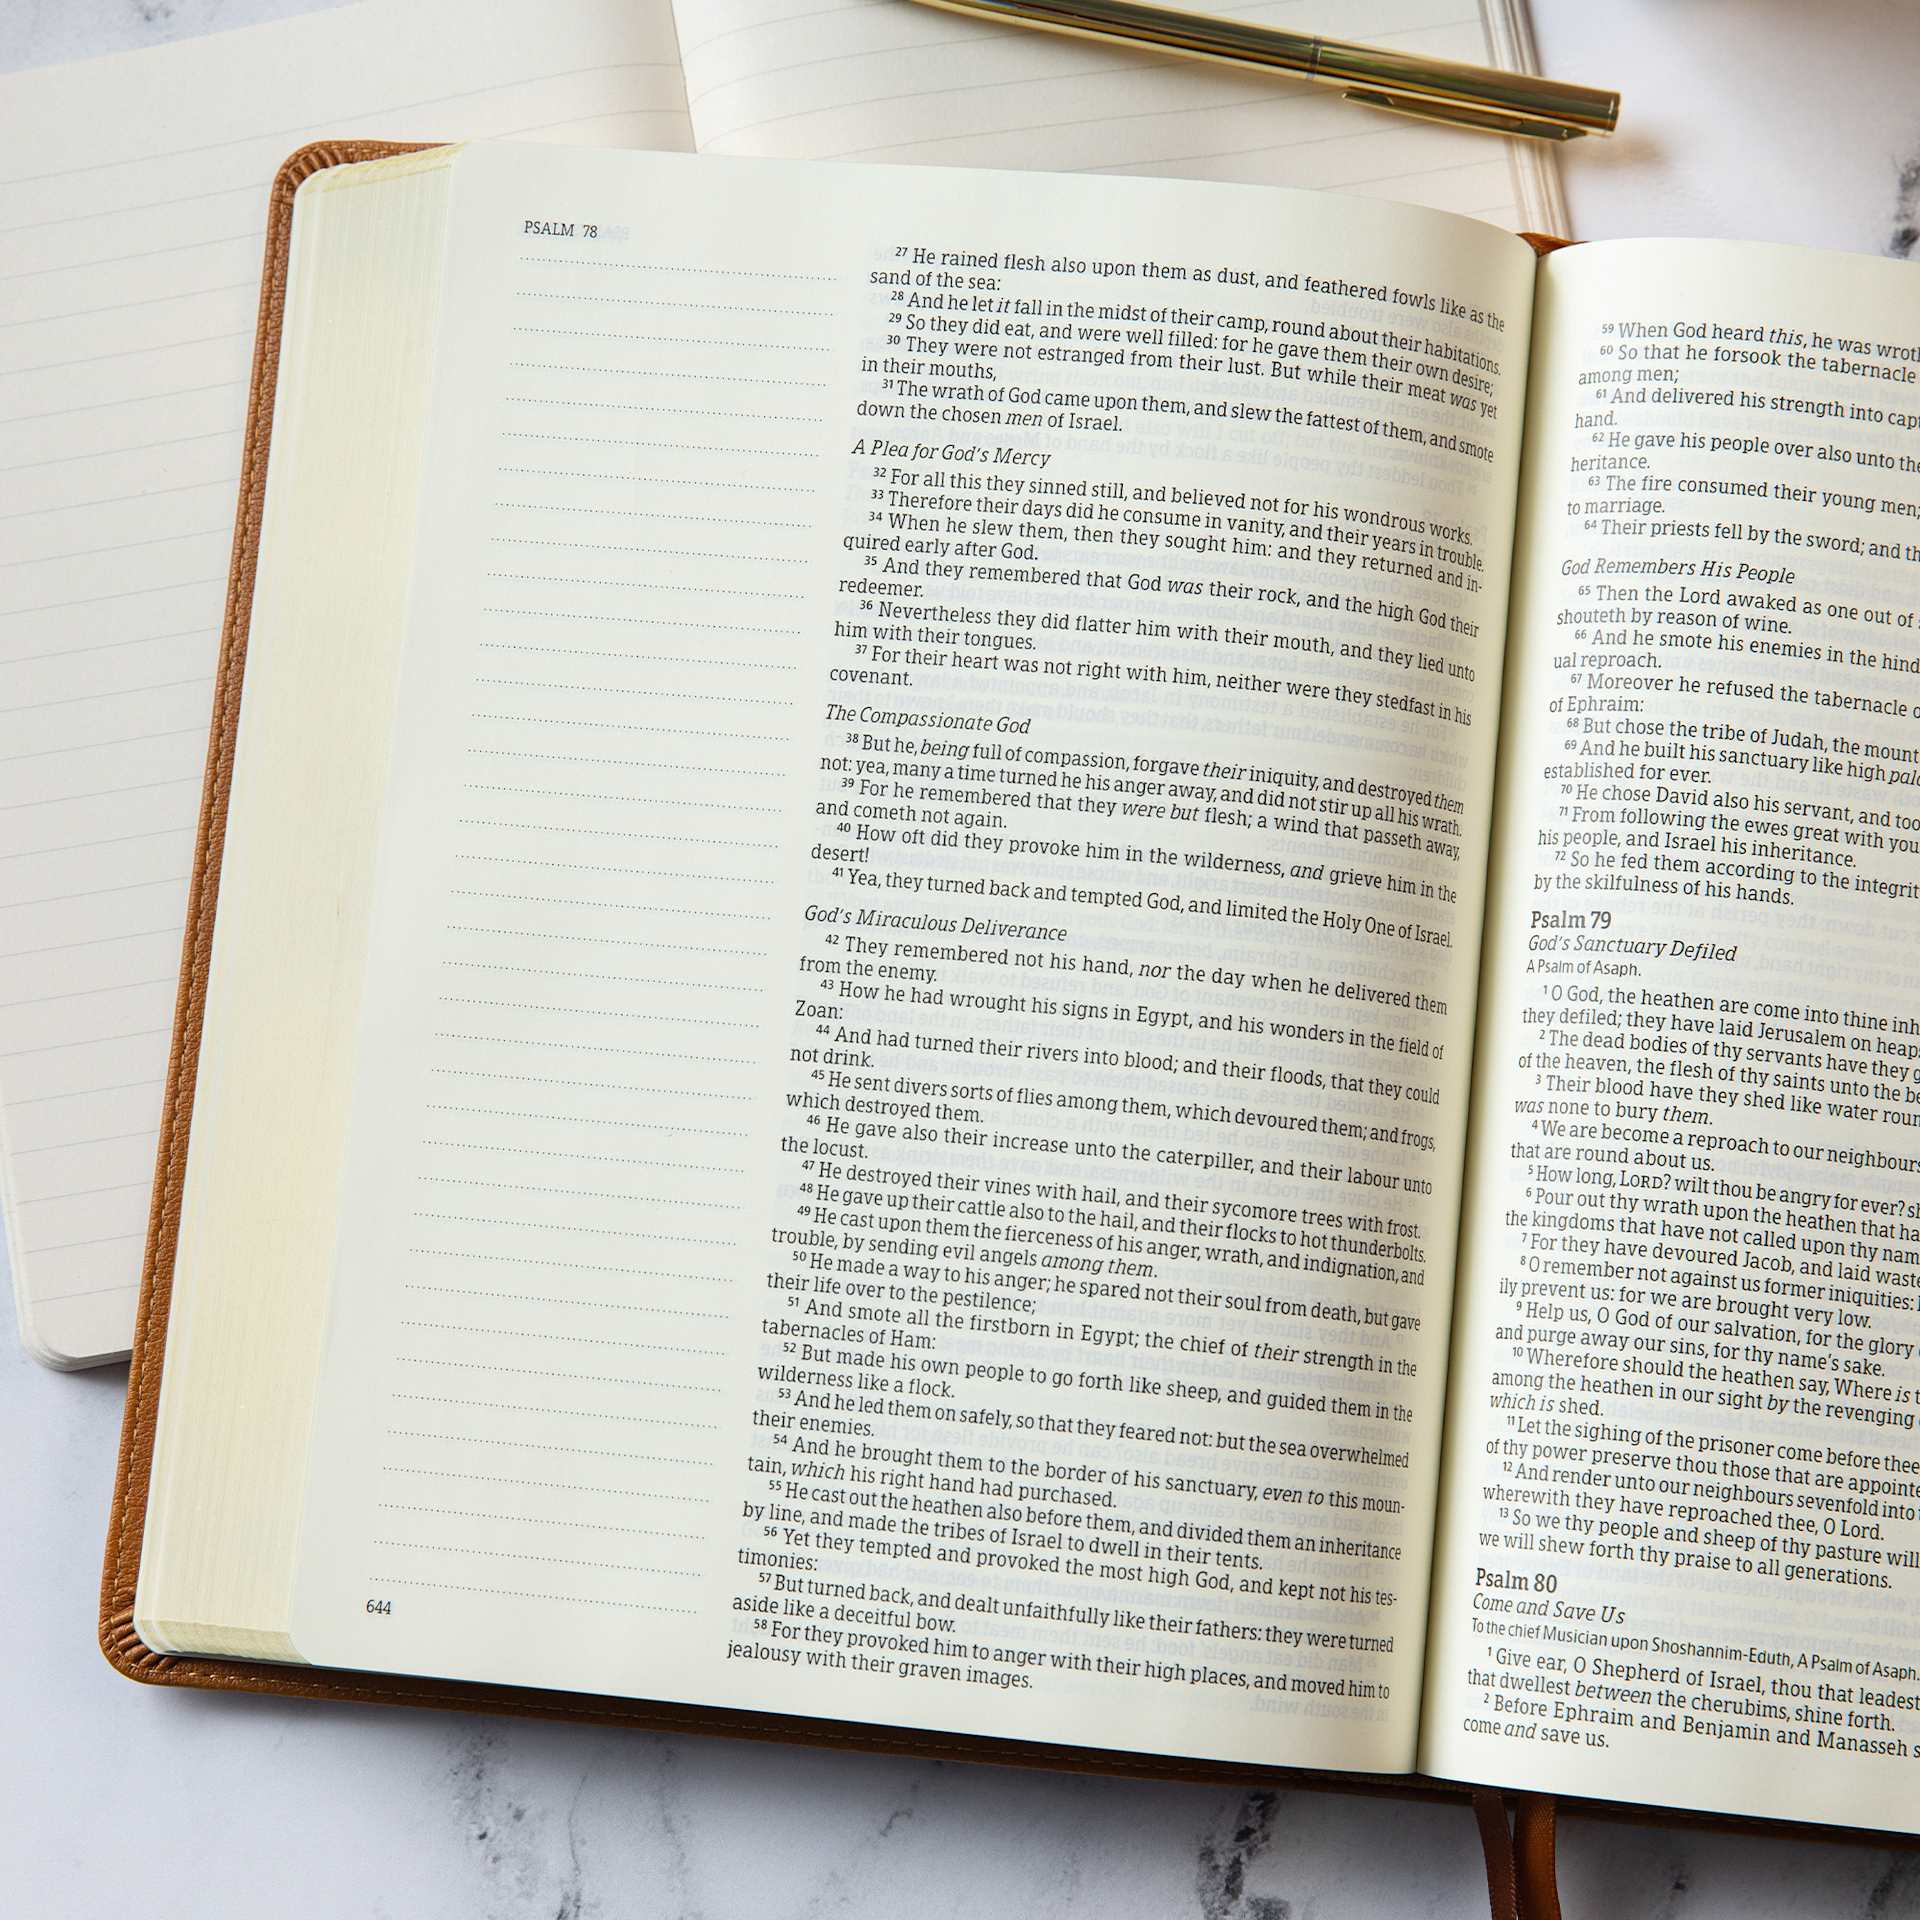 PSALM 78
27 He rained flesh also upon them as dust, and feathered fowls like as the
sand of the sea:
28 And he let it fall in the midst of their camp, round about their habitations.
29 So they did eat, and were well filled: for he gave them their own desire;
30 They were not estranged from their lust. But while their meat was yet
in their mouths,
31 The wrath of God came upon them, and slew the fattest of them, and smote
down the chosen men of Israel.
A Plea for God's Mercy
32 For all this they sinned still, and believed not for his wondrous works.
33 Therefore their days did he consume in vanity, and their years in trouble.
34 When he slew them, then they sought him: and they returned and in-
quired early after God.
35 And they remembered that God was their rock, and the high God their
redeemer.
36 Nevertheless they did flatter him with their mouth, and they lied unto
him with their tongues.
37 For their heart was not right with him, neither were they stedfast in his
covenant.
The Compassionate God
38 But he, being full of compassion, forgave their iniquity, and destroyed them
not: yea, many a time turned he his anger away, and did not stir up all his wrath.
39 For he remembered that they were but flesh; a wind that passeth away,
and cometh not again.
40 How oft did they provoke him in the wilderness, and grieve him in the
desert!
41 Yea, they turned back and tempted God, and limited the Holy One of Israel.
God's Miraculous Deliverance
42 They remembered not his hand, nor the day when he delivered them
from the enemy.
43 How he had wrought his signs in Egypt, and his wonders in the field of
Zoan:
44 And had turned their rivers into blood; and their floods, that they could
not drink.
45 He sent divers sorts of flies among them, which devoured them; and frogs,
which destroyed them.
46 He gave also their increase unto the caterpiller, and their labour unto
the locust.
47 He destroyed their vines with hail, and their sycomore trees with frost.
48 He gave up their cattle also to the hail, and their flocks to hot thunderbolts.
49 He cast upon them the fierceness of his anger, wrath, and indignation, and
trouble, by sending evil angels among them.
50 He made a way to his anger; he spared not their soul from death, but gave
their life over to the pestilence;
51 And smote all the firstborn in Egypt; the chief of their strength in the
tabernacles of Ham:
52 But made his own people to go forth like sheep, and guided them in the
wilderness like a flock.
53 And he led them on safely, so that they feared not: but the sea overwhelmed
their enemies.
54 And he brought them to the border of his sanctuary, even to this moun-
tain, which his right hand had purchased.
55 He cast out the heathen also before them, and divided them an inheritance
by line, and made the tribes of Israel to dwell in their tents.
56 Yet they tempted and provoked the most high God, and kept not his tes-
timonies:
57 But turned back, and dealt unfaithfully like their fathers: they were turned
aside like a deceitful bow.
58 For they provoked him to anger with their high places, and moved him to
jealousy with their graven images.
644
59 When God heard this, he was
60 So that he forsook the tabernacle
among men;
61 And delivered his strength into
hand.
62 He gave his people over also unto
heritance.
63 The fire consumed their young men;
to marriage.
64 Their priests fell by the sword; and
God Remembers His People
65 Then the Lord awaked as one out of
shouteth by reason of wine.
66 And he smote his enemies in the
ual reproach.
67 Moreover he refused the tabernacle
of Ephraim:
68 But chose the tribe of Judah, the mount
69 And he built his sanctuary like high
established for ever.
70 He chose David also his servant, and
71 From following the ewes great with
his people, and Israel his inheritance.
72 So he fed them according to the
by the skilfulness of his hands.
Psalm 79
God's Sanctuary Defiled
A Psalm of Asaph.
1 O God, the heathen are come into thine
they defiled; they have laid Jerusalem on
2 The dead bodies of thy servants have they
of the heaven, the flesh of thy saints unto the
3 Their blood have they shed like water
was none to bury them.
4 We are become a reproach to our neighbours
that are round about us.
5 How long, LORD? wilt thou be angry for ever?
6 Pour out thy wrath upon the heathen that
the kingdoms that have not called upon thy
7 For they have devoured Jacob, and laid
8 O remember not against us former iniquities:
ily prevent us: for we are brought very low.
9 Help us, O God of our salvation, for the glory
and purge away our sins, for thy name's sake.
10 Wherefore should the heathen say, Where is
among the heathen in our sight by the revenging
which is shed.
11 Let the sighing of the prisoner come before
of thy power preserve thou those that are
12 And render unto our neighbours sevenfold into
wherewith they have reproached thee, O Lord.
13 So we thy people and sheep of thy pasture
we will shew forth thy praise to all generations.
Psalm 80
Come and Save Us
To the chief Musician upon Shoshannim-Eduth, A Psalm of Asaph.
1 Give ear, O Shepherd of Israel, thou that leadest
that dwellest between the cherubims, shine forth.
2 Before Ephraim and Benjamin and Manasseh
come and save us.